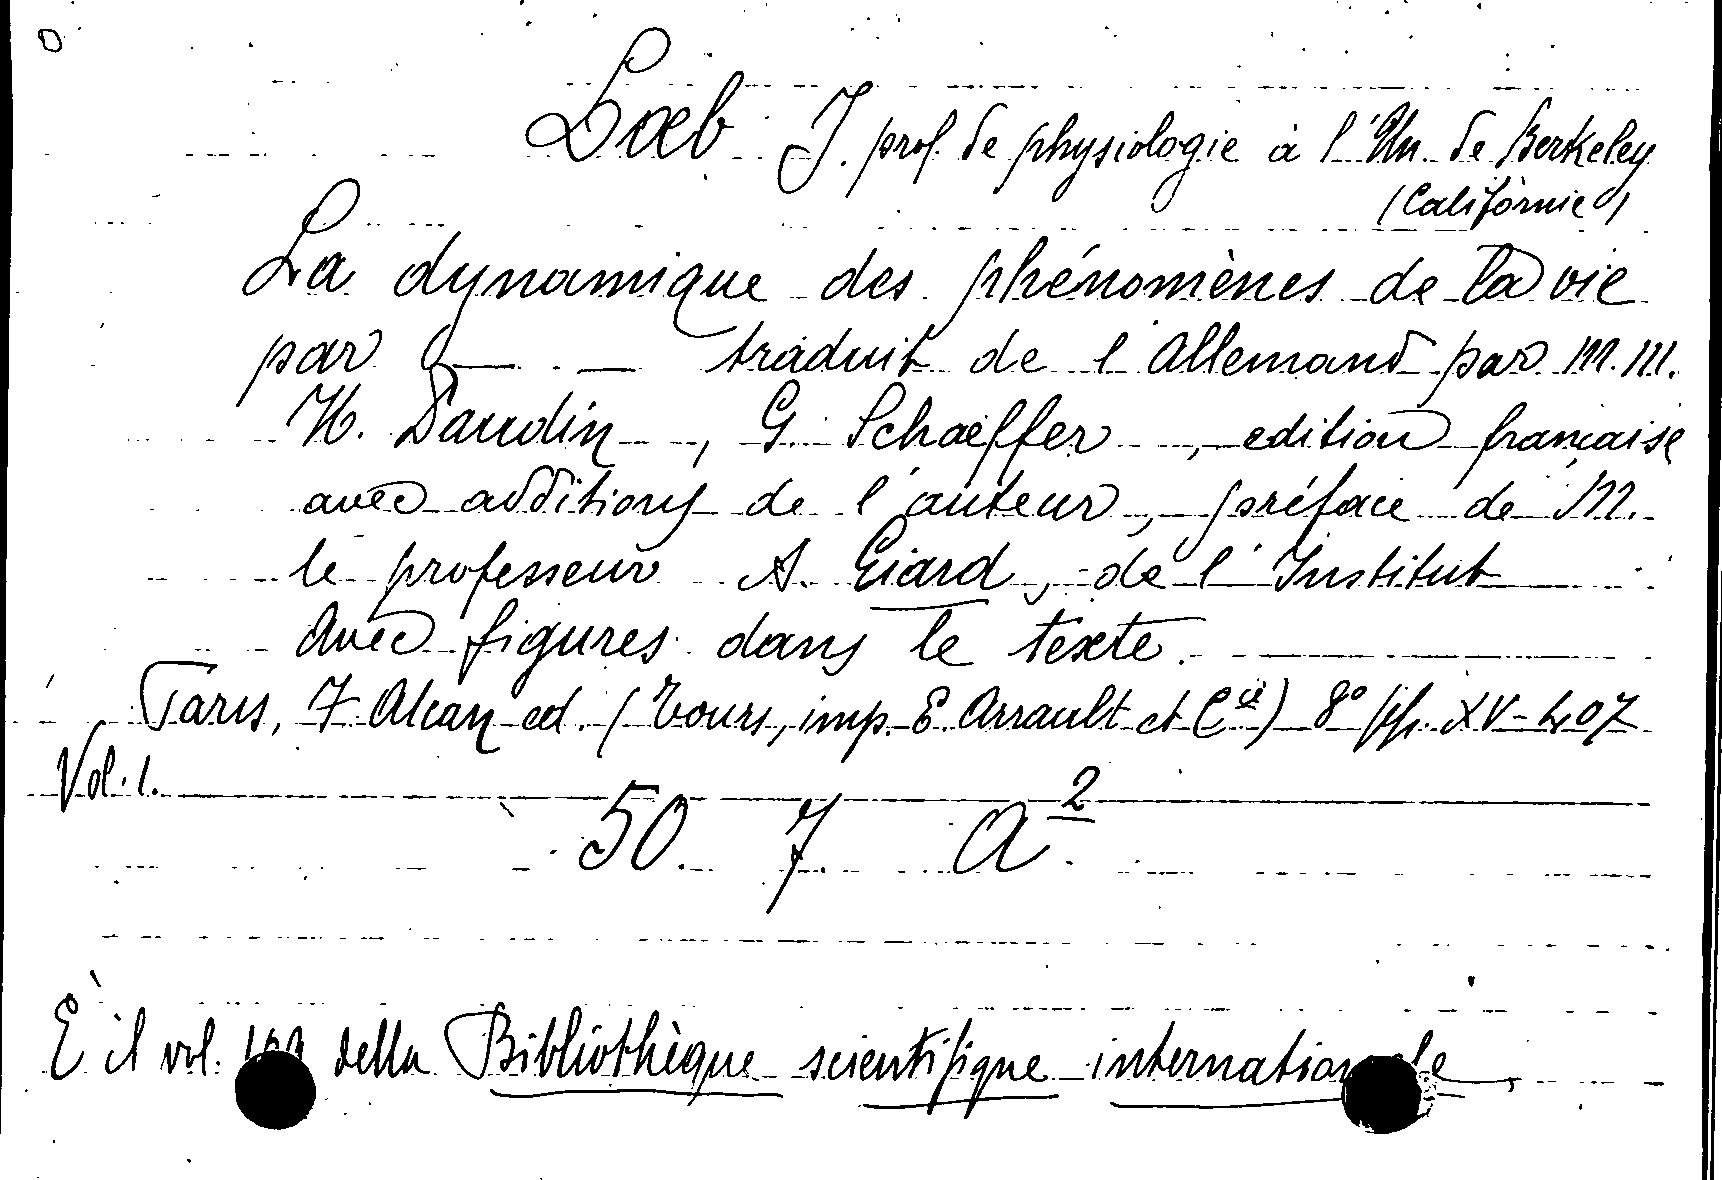 Lœb J. prof. de physiologie à l'Un. de Berkeley
(Californie)
La dynamique des phénomènes de la vie
par — — traduit de l'Allemand par M.M.
H. Daudin, G. Schaeffer, edition française
avec additions de l'auteur, préface de M.
le professeur A. Giard, de l'Institut
avec figures dans le texte.
Paris, F. Alcan ed. (Tours, imp. E. Arrault et Cie) 8° pp. XV-407
Vol. 1.
50. 7. A2
È il vol. della Bibliothèque scientifique internationale